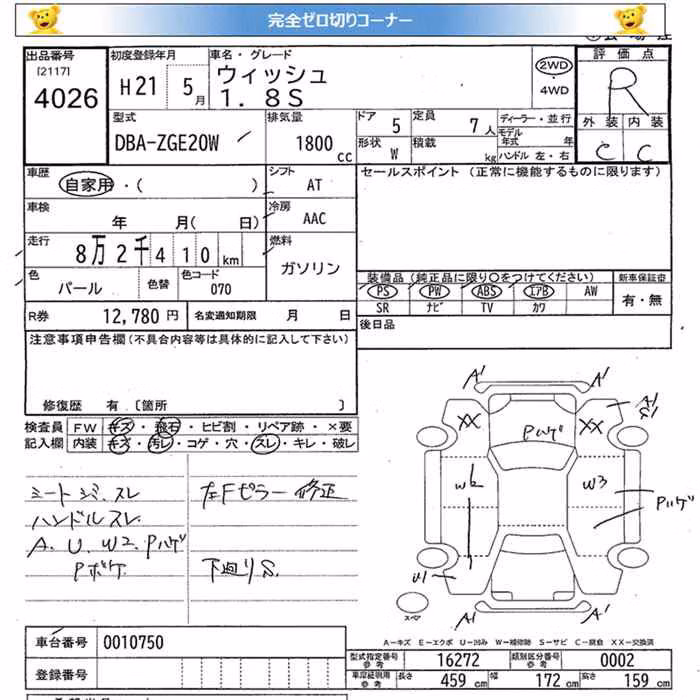 完全ゼロ切りコーナー
出品番号
[2117]
4026
初度登録年月
H21 5月
車名・グレード
ウィッシュ
1.8S
2WD
・
4WD
評価点
R
外装 内装
C C
型式
DBA-ZGE20W
排気量
1800
cc
ドア 5
形状 W
定員 7人
積載 kg
ディーラー・並行
モデル年式 年
ハンドル 左・右
車歴
自家用・( )
シフト
AT
車検
年 月( 日)
冷房
AAC
走行
8万2千410km
燃料
ガソリン
色
パール
色替
色コード
070
R券 12,780 円
名変通知期限 月 日
セールスポイント (正常に機能するものに限ります)
装備品 (純正品に限り○をつけてください)
新車保証書
PS PW ABS エアB AW
SR ナビ TV カワ
有・無
後日品
注意事項申告欄(不具合内容等は具体的に記入して下さい)
修復歴 有.〔箇所 〕
検査員
記入欄
FW キズ・飛石・ヒビ割・リペア跡・×要
内装 キズ・汚レ・コゲ・穴・スレ・キレ・破レ
シートシミ、スレ
ハンドルスレ
A、U、W2、Pハゲ
Pボケ
左Fピラー修正
下廻りS
A' A'
XX XX
A'
S'
Pハゲ
W2 W3
Pハゲ
U1
A' A'
スペア
A-キズ E-エクボ U-凹み W-補修跡 S-サビ C-腐食 XX-交換済
車台番号 0010750
登録番号
型式指定番号
参考
16272
類別区分番号
参考
0002
車庫証明用
参考
長さ 459 cm 幅 172 cm 高さ 159 cm